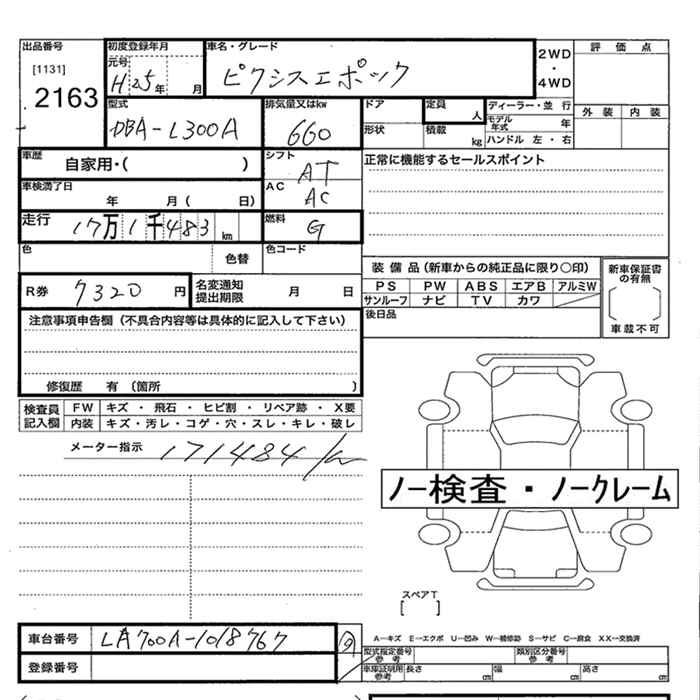 出品番号 初度登録年月 車名・グレード
[1131] 元号 H25年 月 ピクシスエポック
2163
2WD・4WD
評価点
外装 内装
型式 DBA-L300A
排気量又はkw 660
ドア 定員 人
形状 積載 kg
ディーラー・並行
モデル年式 年
ハンドル 左・右
車歴 自家用・( )
シフト AT
正常に機能するセールスポイント
車検満了日 年 月 ( 日)
AC AC
走行 17万1千483km
燃料 G
色 色替 色コード
装備品(新車からの純正品に限り○印)
新車保証書の有無
PS PW ABS エアB アルミW
サンルーフ ナビ TV カワ
車載 不可
R券 7320円
名変通知提出期限 月 日
後日品
注意事項申告欄(不具合内容等は具体的に記入して下さい)
修復歴 有 (箇所 )
検査員記入欄
FW キズ・飛石・ヒビ割・リペア跡・X要
内装 キズ・汚レ・コゲ・穴・スレ・キレ・破レ
メーター指示 171484km
ノー検査・ノークレーム
スペアT
[ ]
車台番号 LA700A-1018767
登録番号
A—キズ E—エクボ U—凹み W—補修跡 S—サビ C—腐食 XX—交換済
型式指定番号参考 類別区分番号参考
車庫証明用参考 長さ cm 幅 cm 高さ cm